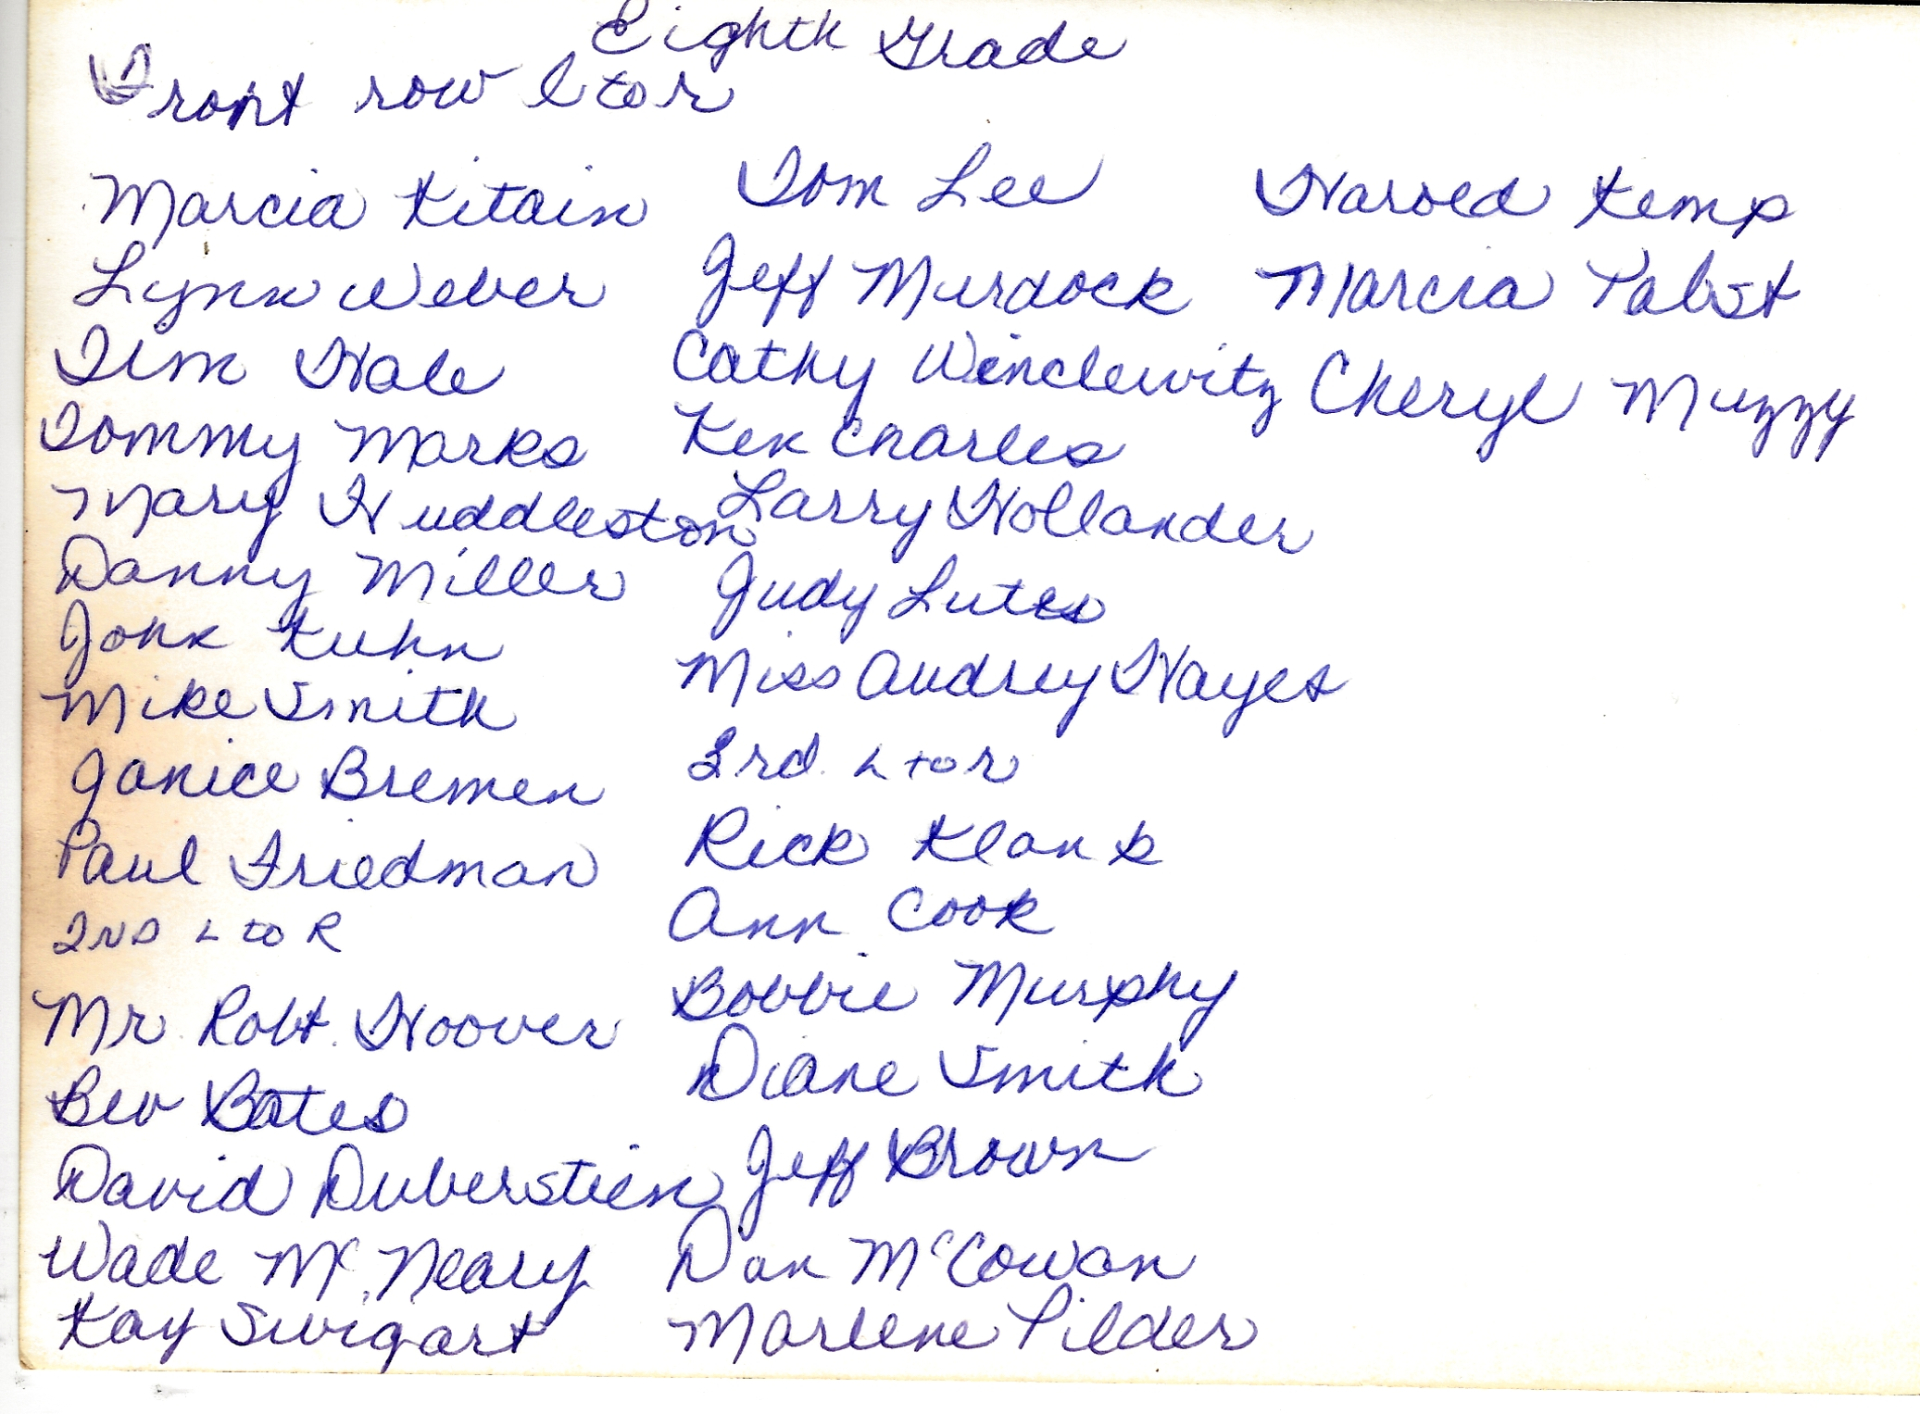 Eighth Grade
Front row l to r
Marcia Kitain
Lynn Weber
Tim Hale
Tommy Marks
Mary Huddleston
Danny Miller
John Kuhn
Mike Smith
Janice Bremen
Paul Friedman
2ND L to R
Mr Robt. Hoover
Bev Bates
David Duberstien
Wade McNeary
Kay Swigart
Tom Lee
Jeff Murdock
Cathy Winclewitz
Ken Charles
Larry Hollander
Judy Lutes
Miss Audrey Hayes
3rd L to r
Rick Klank
Ann Cook
Bobbie Murphy
Diane Smith
Jeff Brown
Dan McCowan
Marlene Pilder
Harold Kemp
Marcia Pabst
Cheryl Muzzy